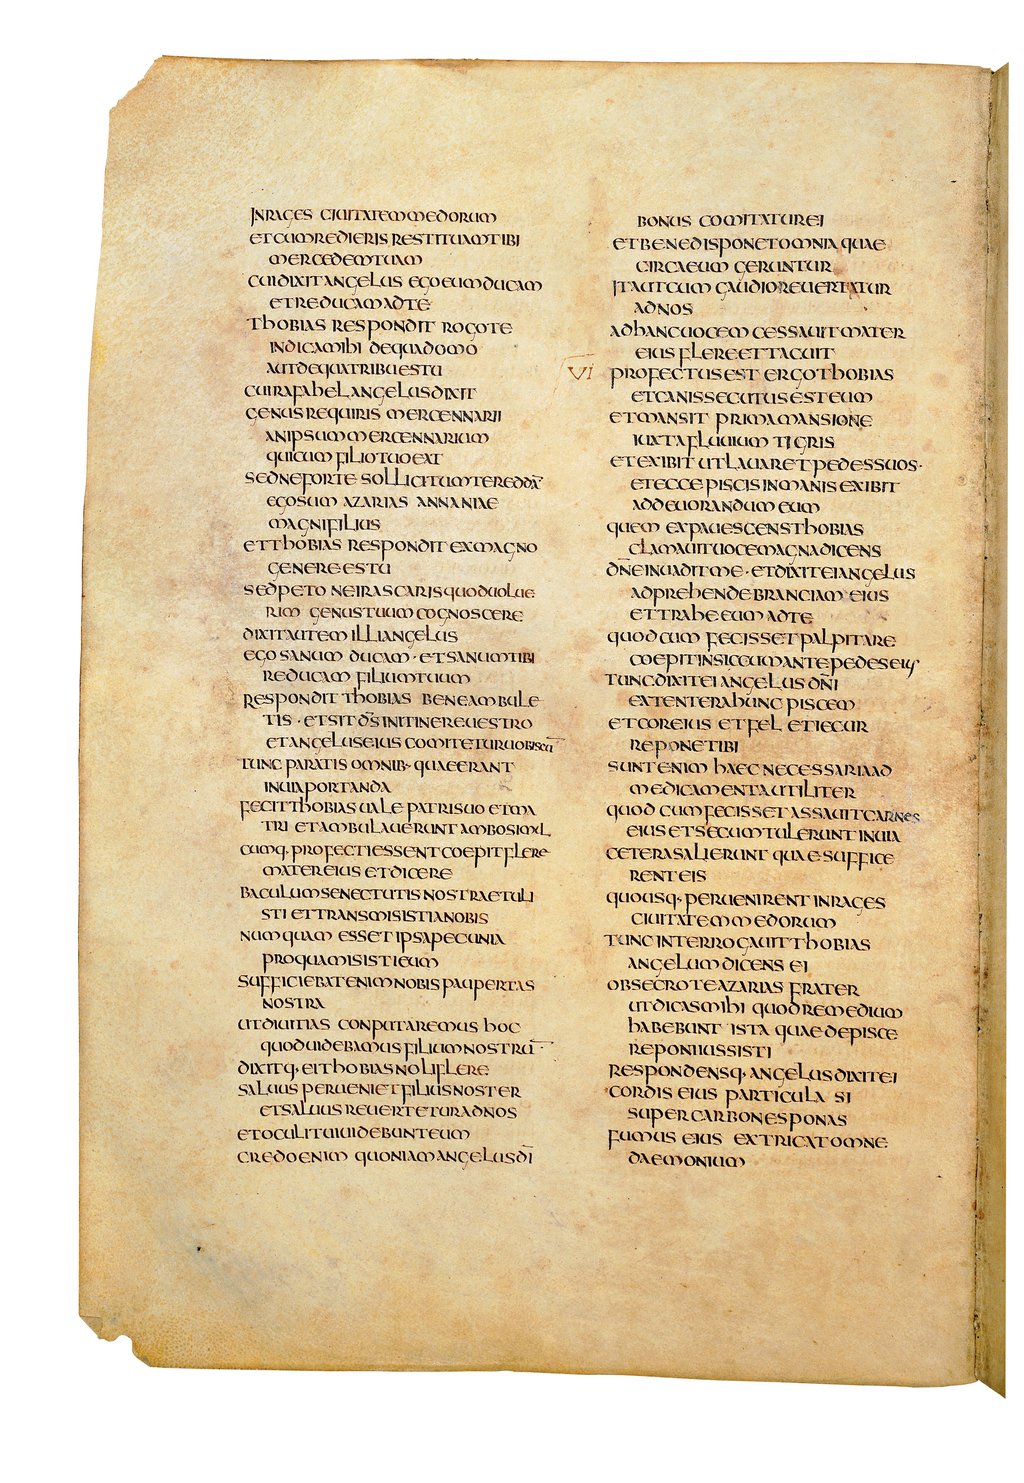 INRAGES CIUITATEM MEDORUM
ETCUMREDIERIS RESTITUAMTIBI
MERCEDEMTUAM
CUIDIXITANGELUS EGOEUMDUCAM
ETREDUCAMADTE
THOBIAS RESPONDIT ROGOTE
INDICAMIHI DEQUADOMO
AUTDEQUATRIBUESTU
CUIRAFAHELANGELUSDIXIT
GENUSREQUIRIS MERCENNARII
ANIPSUMMERCENNARIUM
QUICUM FILIOTUOEAT
SEDNEFORTE SOLLICITUMTEREDDĀ
EGOSUM AZARIAS ANNANIAE
MAGNIFILIUS
ETTHOBIAS RESPONDIT EXMAGNO
GENEREESTU
SEDPETO NEIRASCARISQUODUOLUE
RIM GENUSTUUMCOGNOSCERE
DIXITAUTEMILLIANGELUS
EGOSANUM DUCAM · ETSANUMTIBI
REDUCAM FILIUMTUUM
RESPONDIT THOBIAS BENEAMBULE
TIS · ETSITD̄S INITINEREUESTRO
ETANGELUSEIUS COMITETURUOBISCŪ
TUNC PARATIS OMNIB· QUAEERANT
INUIAPORTANDA
FECITTHOBIASUALE PATRISUO ETMA
TRI ETAMBULAUERUNTAMBOSIMUL
CUMQ· PROFECTIESSENTCOEPITFLERE
MATEREIUS ETDICERE
BACULUMSENECTUTISNOSTRAETULI
STI ETTRANSMISISTIANOBIS
NUMQUAM ESSETIPSAPECUNIA
PROQUAMISISTIEUM
SUFFICIEBATENIMNOBISPAUPERTAS
NOSTRA
UTDIUITIAS CONPUTAREMUS HOC
QUODUIDEBAMUSFILIUMNOSTRŪ
DIXITQ· EITHOBIASNOLIFLERE
SALUUS PERUENIETFILIUSNOSTER
ETSALUUSREUERTETURADNOS
ETOCULITUIUIDEBUNTEUM
CREDOENIM QUONIAMANGELUSDĪ
BONUS COMITATUREI
ETBENEDISPONETOMNIA QUAE
CIRCAEUM GERUNTUR
ITAUTCUM GAUDIOREUERTATUR
ADNOS
ADHANCUOCEM CESSAUITMATER
EIUS FLEREETTACUIT
VI PROFECTUSEST ERGOTHOBIAS
ETCANISSECUTUSESTEUM
ETMANSIT PRIMAMANSIONE
IUXTAFLUUIUM TIGRIS
ETEXIBIT UTLAUARETPEDESSUOS·
ETECCEPISCISINMANISEXIBIT
ADDEUORANDUM EUM
QUEM EXPAUESCENSTHOBIAS
CLAMAUITUOCEMAGNADICENS
DN̄EINUADITME · ETDIXITEIANGELUS
ADPREHENDEBRANCIAM EIUS
ETTRAHEEUM ADTE
QUODCUM FECISSETPALPITARE
COEPITINSICCUMANTEPEDESEIUS
TUNCDIXITEIANGELUSDN̄I
EXTENTERAHUNC PISCEM
ETCOREIUS ETFEL ETIECUR
REPONETIBI
SUNTENIM HAECNECESSARIAAD
MEDICAMENTAUTILITER
QUOD CUMFECISSETASSAUITCARNES
EIUSETSECUMTULERUNT INUIA
CETERASALIERUNT QUAESUFFICE
RENTEIS
QUOUSQ· PERUENIRENTINRAGES
CIUITATEMMEDORUM
TUNCINTERROGAUITTHOBIAS
ANGELUMDICENS EI
OBSECROTEAZARIAS FRATER
UTDICASMIHI QUODREMEDIUM
HABEBUNT ISTA QUAEDEPISCE
REPONIUSSISTI
RESPONDENSQ· ANGELUSDIXITEI
CORDIS EIUS PARTICULA SI
SUPERCARBONESPONAS
FUMUS EIUS EXTRICATOMNE
DAEMONIUM